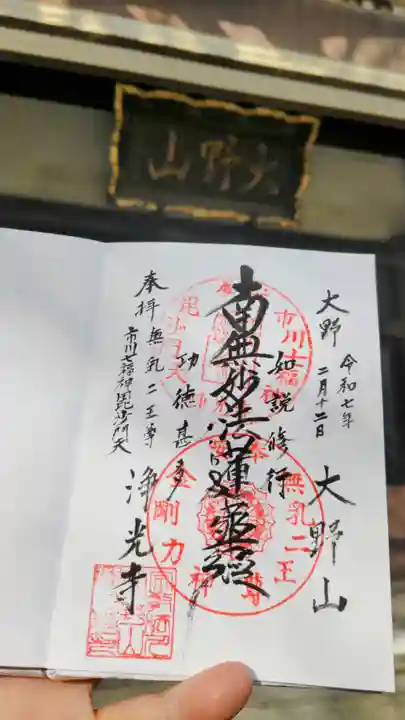 山野大
大野 令和七年
二月十二日
大野山
如説修行
南無妙法蓮華経
功徳甚多
浄光寺
奉拝 無乳二王尊
市川七福神毘沙門天
市川七福神
毘沙門天
無乳二王尊
金剛力神